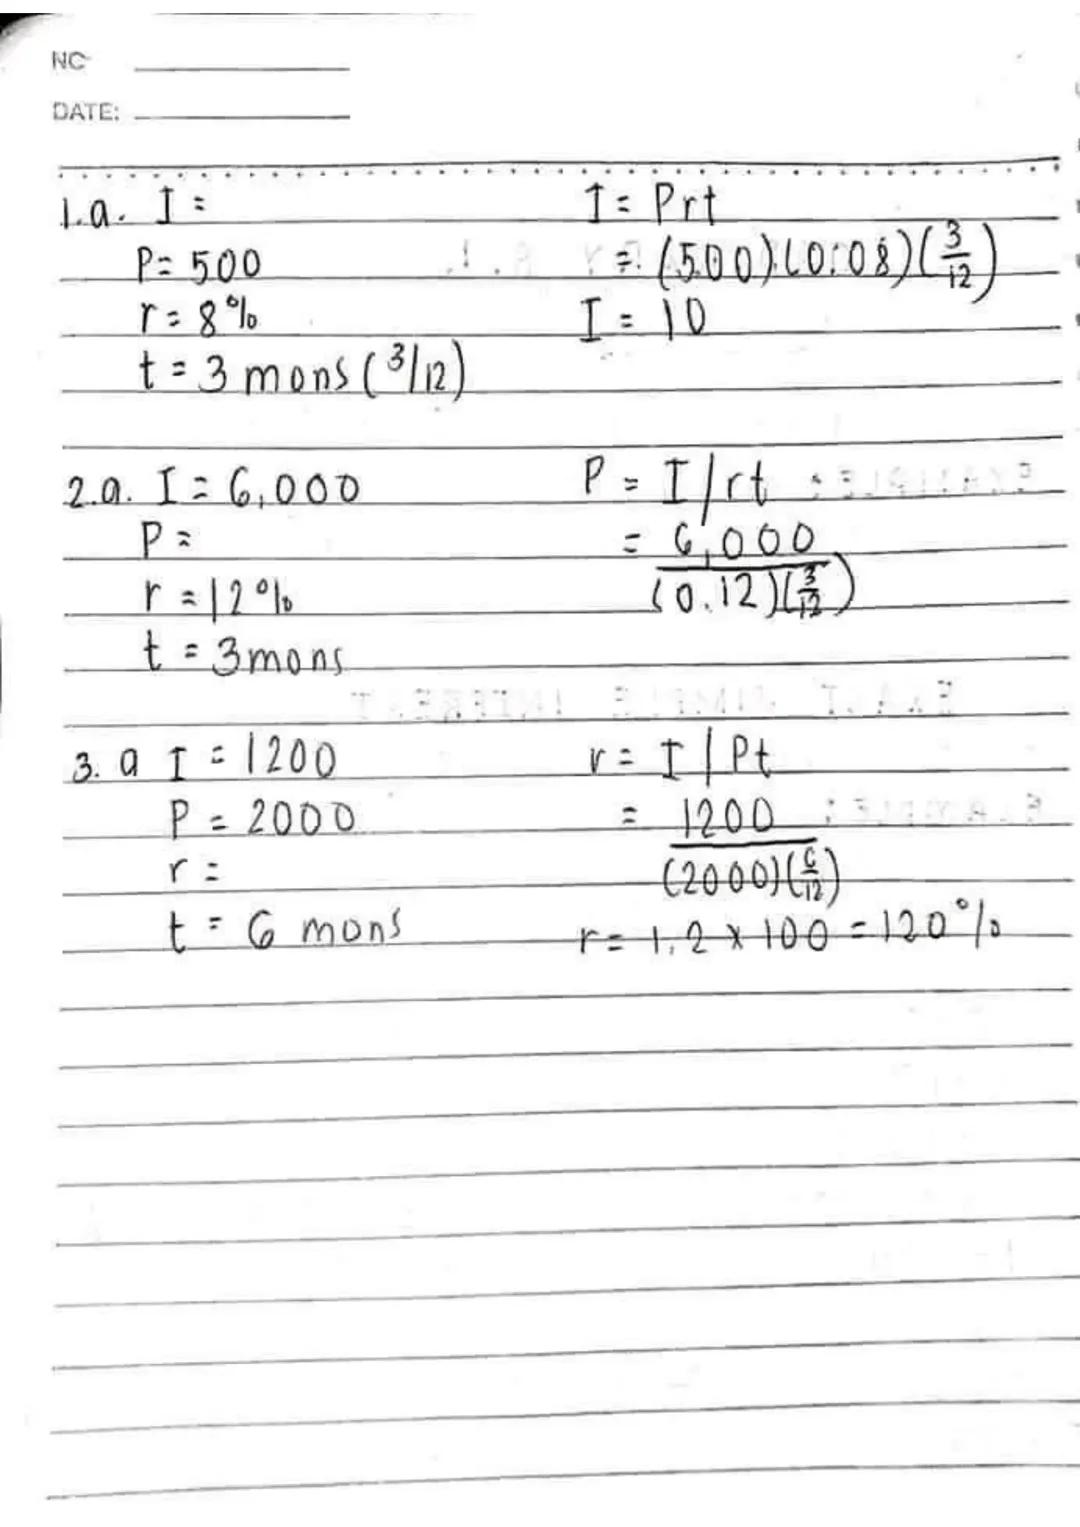 NO
DATE:
1.a. I =
P = 500
r = 8%
t = 3 mons (3/12)
I = Prt
= (500)(0.08)(3/12)
I = 10
2.a. I = 6,000
P =
r = 12%
t = 3 mons
P = I/rt
= 6,000
(0.12)(3/12)
3. a I = 1200
P = 2000
r =
t = 6 mons
r = I/Pt
= 1200
(2000)(6/12)
r = 1.2 x 100 = 120%
EXAMPLE:
EXACT SIMPLE INTEREST
EXAMPLE: